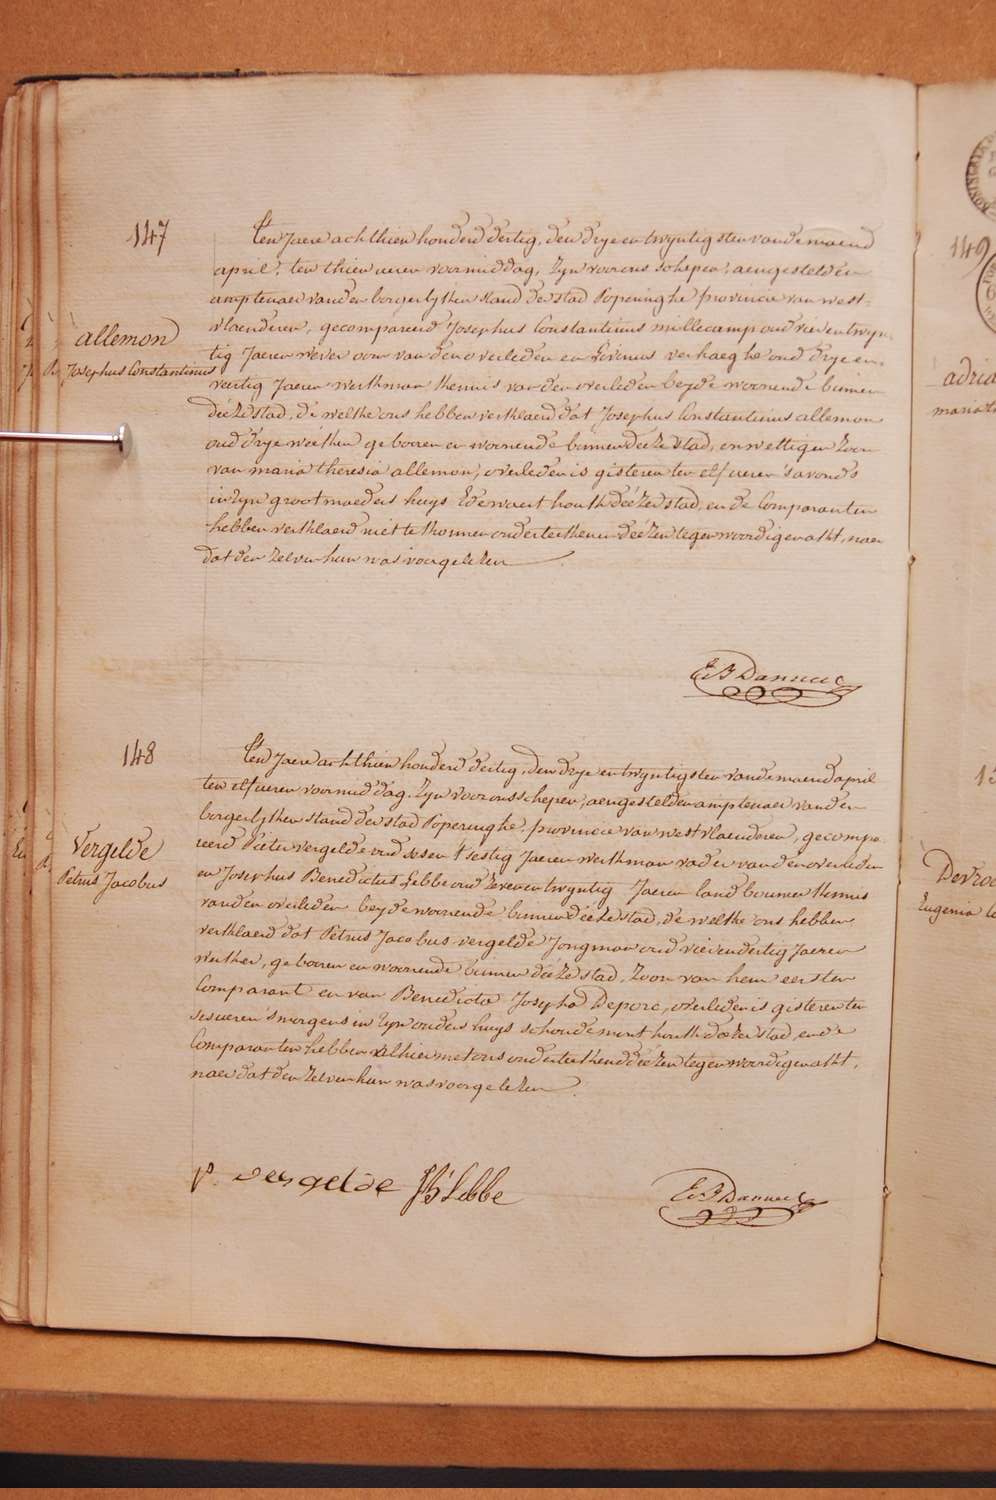 147
Ten Jaere achthien honderd dertig, den drye en twyntigsten van de maend
april, ten thien ueren voormiddag, Zyn voor ons schepen, aengestelden
amptenaer van den borgerlyken stand der stad Poperinghe provincie van west=
vlaenderen, gecompareerd Josephus Constantinus millecamp oud vier en twyn
tig Jaeren wever oom van den overleden en Livinus verhaeghe oud drye en
allemon
Josephus Constantinus
veertig Jaeren werkman kennis van den overleden beyde woonende binnen
deéze stad, de welke ons hebben verklaerd dat Josephus Constantinus allemon
oud drye weéken geboren en woonende binnen deéze stad, onwettigen Zoon
van maria theresia allemon, overleden is gisteren ten elf ueren 's avonds
in zyn grootmoeders huys Edewaert houk deézer stad, en de Comparanten
hebben verklaerd niet te konnen onderteekenen deézen tegenwoordigen akt, naer
dat den zelven hun was voorgelezen
E B Dannee
148
Ten Jaere achthien honderd dertig, den drye en twyntigsten van de maend april
ten elf ueren voormiddag, Zyn voor ons schepen, aengestelden amptenaer van den
borgerlyken stand der stad Poperinghe, provincie van westvlaenderen, gecompa
reerd Pieter vergelde oud sesen t'sestig Jaeren werkman vader van den overleden
en Josephus Benedictus Lebbe oud zeven en twyntig Jaeren landbouwer kennis
Vergelde
Petrus Jacobus
van den overleden beyde woonende binnen deéze stad, de welke ons hebben
verklaerd dat Petrus Jacobus vergelde Jongman oud vierendertig Jaeren
werker, geboren en woonende binnen deéze stad, Zoon van hem eersten
Comparant en van Benedicta Josepha Deporc, overleden is gisteren ten
ses ueren 's morgens in zyn ouders huys houk deézer stad, en de
Comparanten hebben alhier met ons onderteekend deézen tegenwoordigen akt,
naer dat den zelven hun was voorgelezen
P. vergelde JB Lebbe
E B Dannee
149
adria
maria
Devroe
Eugenia